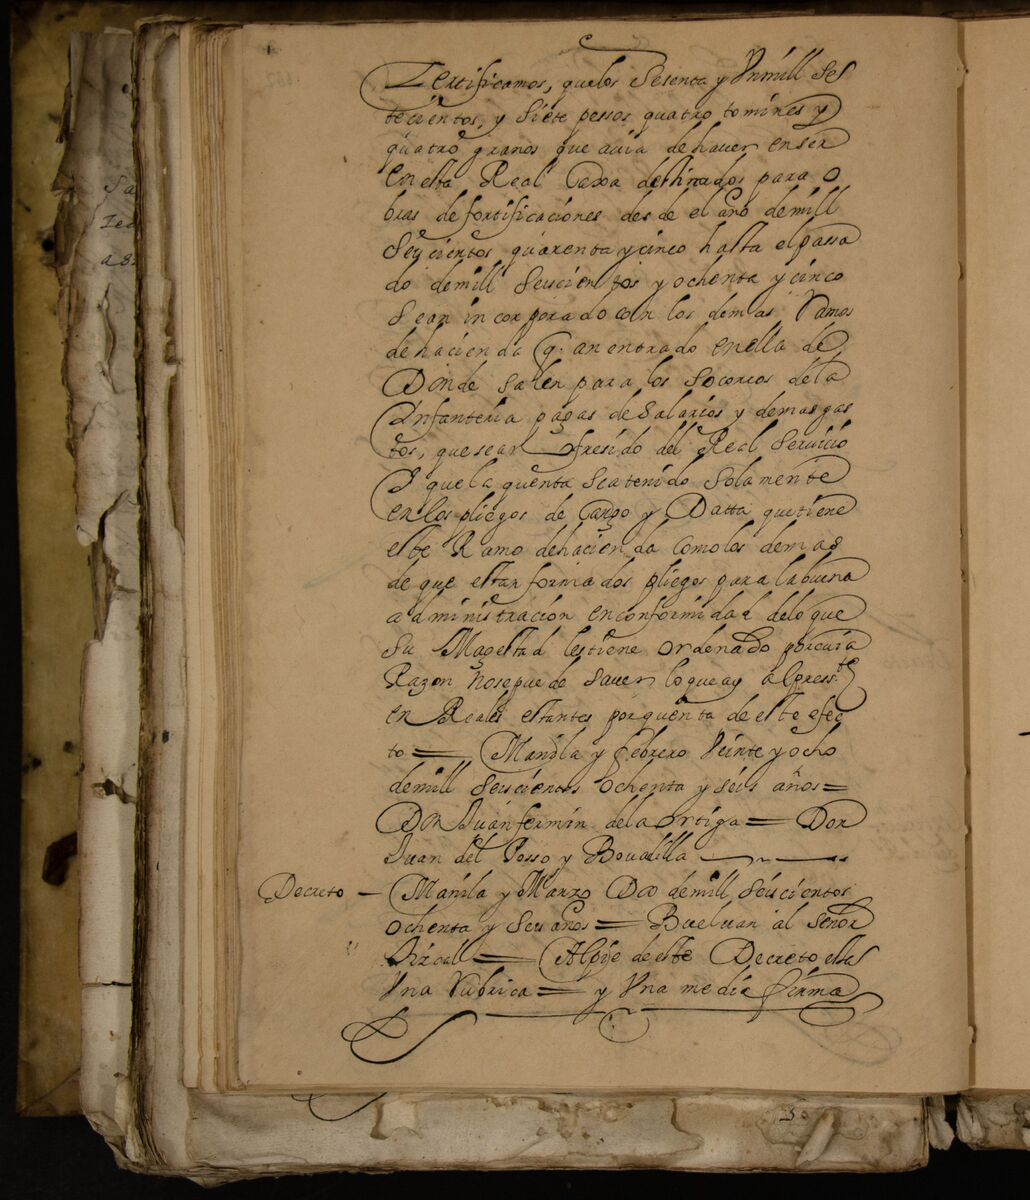 Zertificamos, quelos Sesenta y Vnmill Set
tecientos, y siete pessos quatro tomines y
quatro granos que auia de hauer enser
en esta Real Caxa destinados para o
bras de fortificaciones desde el año demill
Seyscientos quarenta y cinco hasta el passa
do demill Seiscientos y ochenta y cinco
sean incorporado con los demas Ramos
de hacienda q. an entrado enella de
Donde salen para los socorros de la
Infanteria pagas de salarios y demas gas
tos, que sean ofresido del Real Seruicio
I que la quenta sea tenido solamente
en los pliegos de Cargo y Datta que tiene
este Ramo de hacienda como los demas
de que estan formados pliegos para la buena
administracion en conformidad de lo que
Su Magestad les tiene ordenado por cuia
Razon no se puede sauer lo que ay al press.te
en Reales estantes por quenta de este efec
to = Manila y febrero Veinte y ocho
demill seiscientos ochenta y seis años =
Don Juan fermin de la ortiga = Don
Juan del Posso y Boualilla
Decreto – Manila y Marzo Dos demill seiscientos
ochenta y seis años = Bueluan al señor
fiscal = Al pie de este Decreto esta
Vna Rubrica = y Vna media firma
Sa